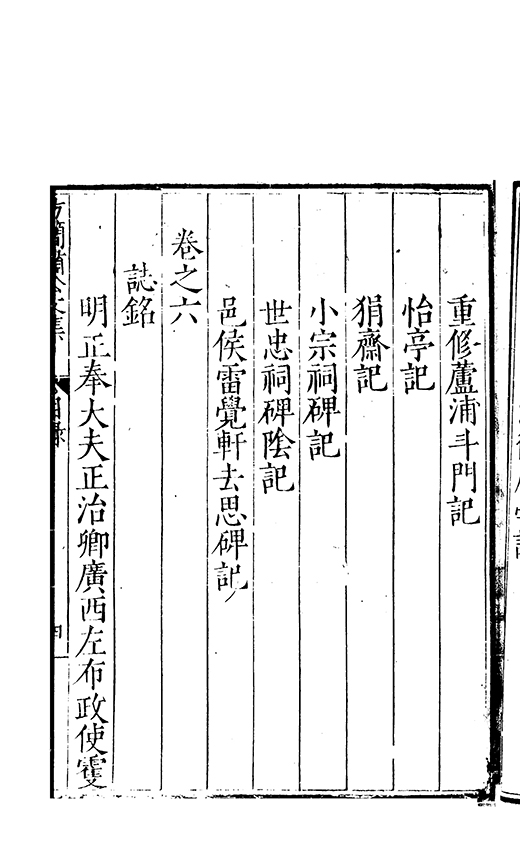 重修蘆浦斗門記
怡亭記
狷齋記
小宗祠碑記
世忠祠碑陰記
邑侯雷覺軒去思碑記
卷之六
誌銘
明正奉大夫正治卿廣西左布政使霅
文集
目錄